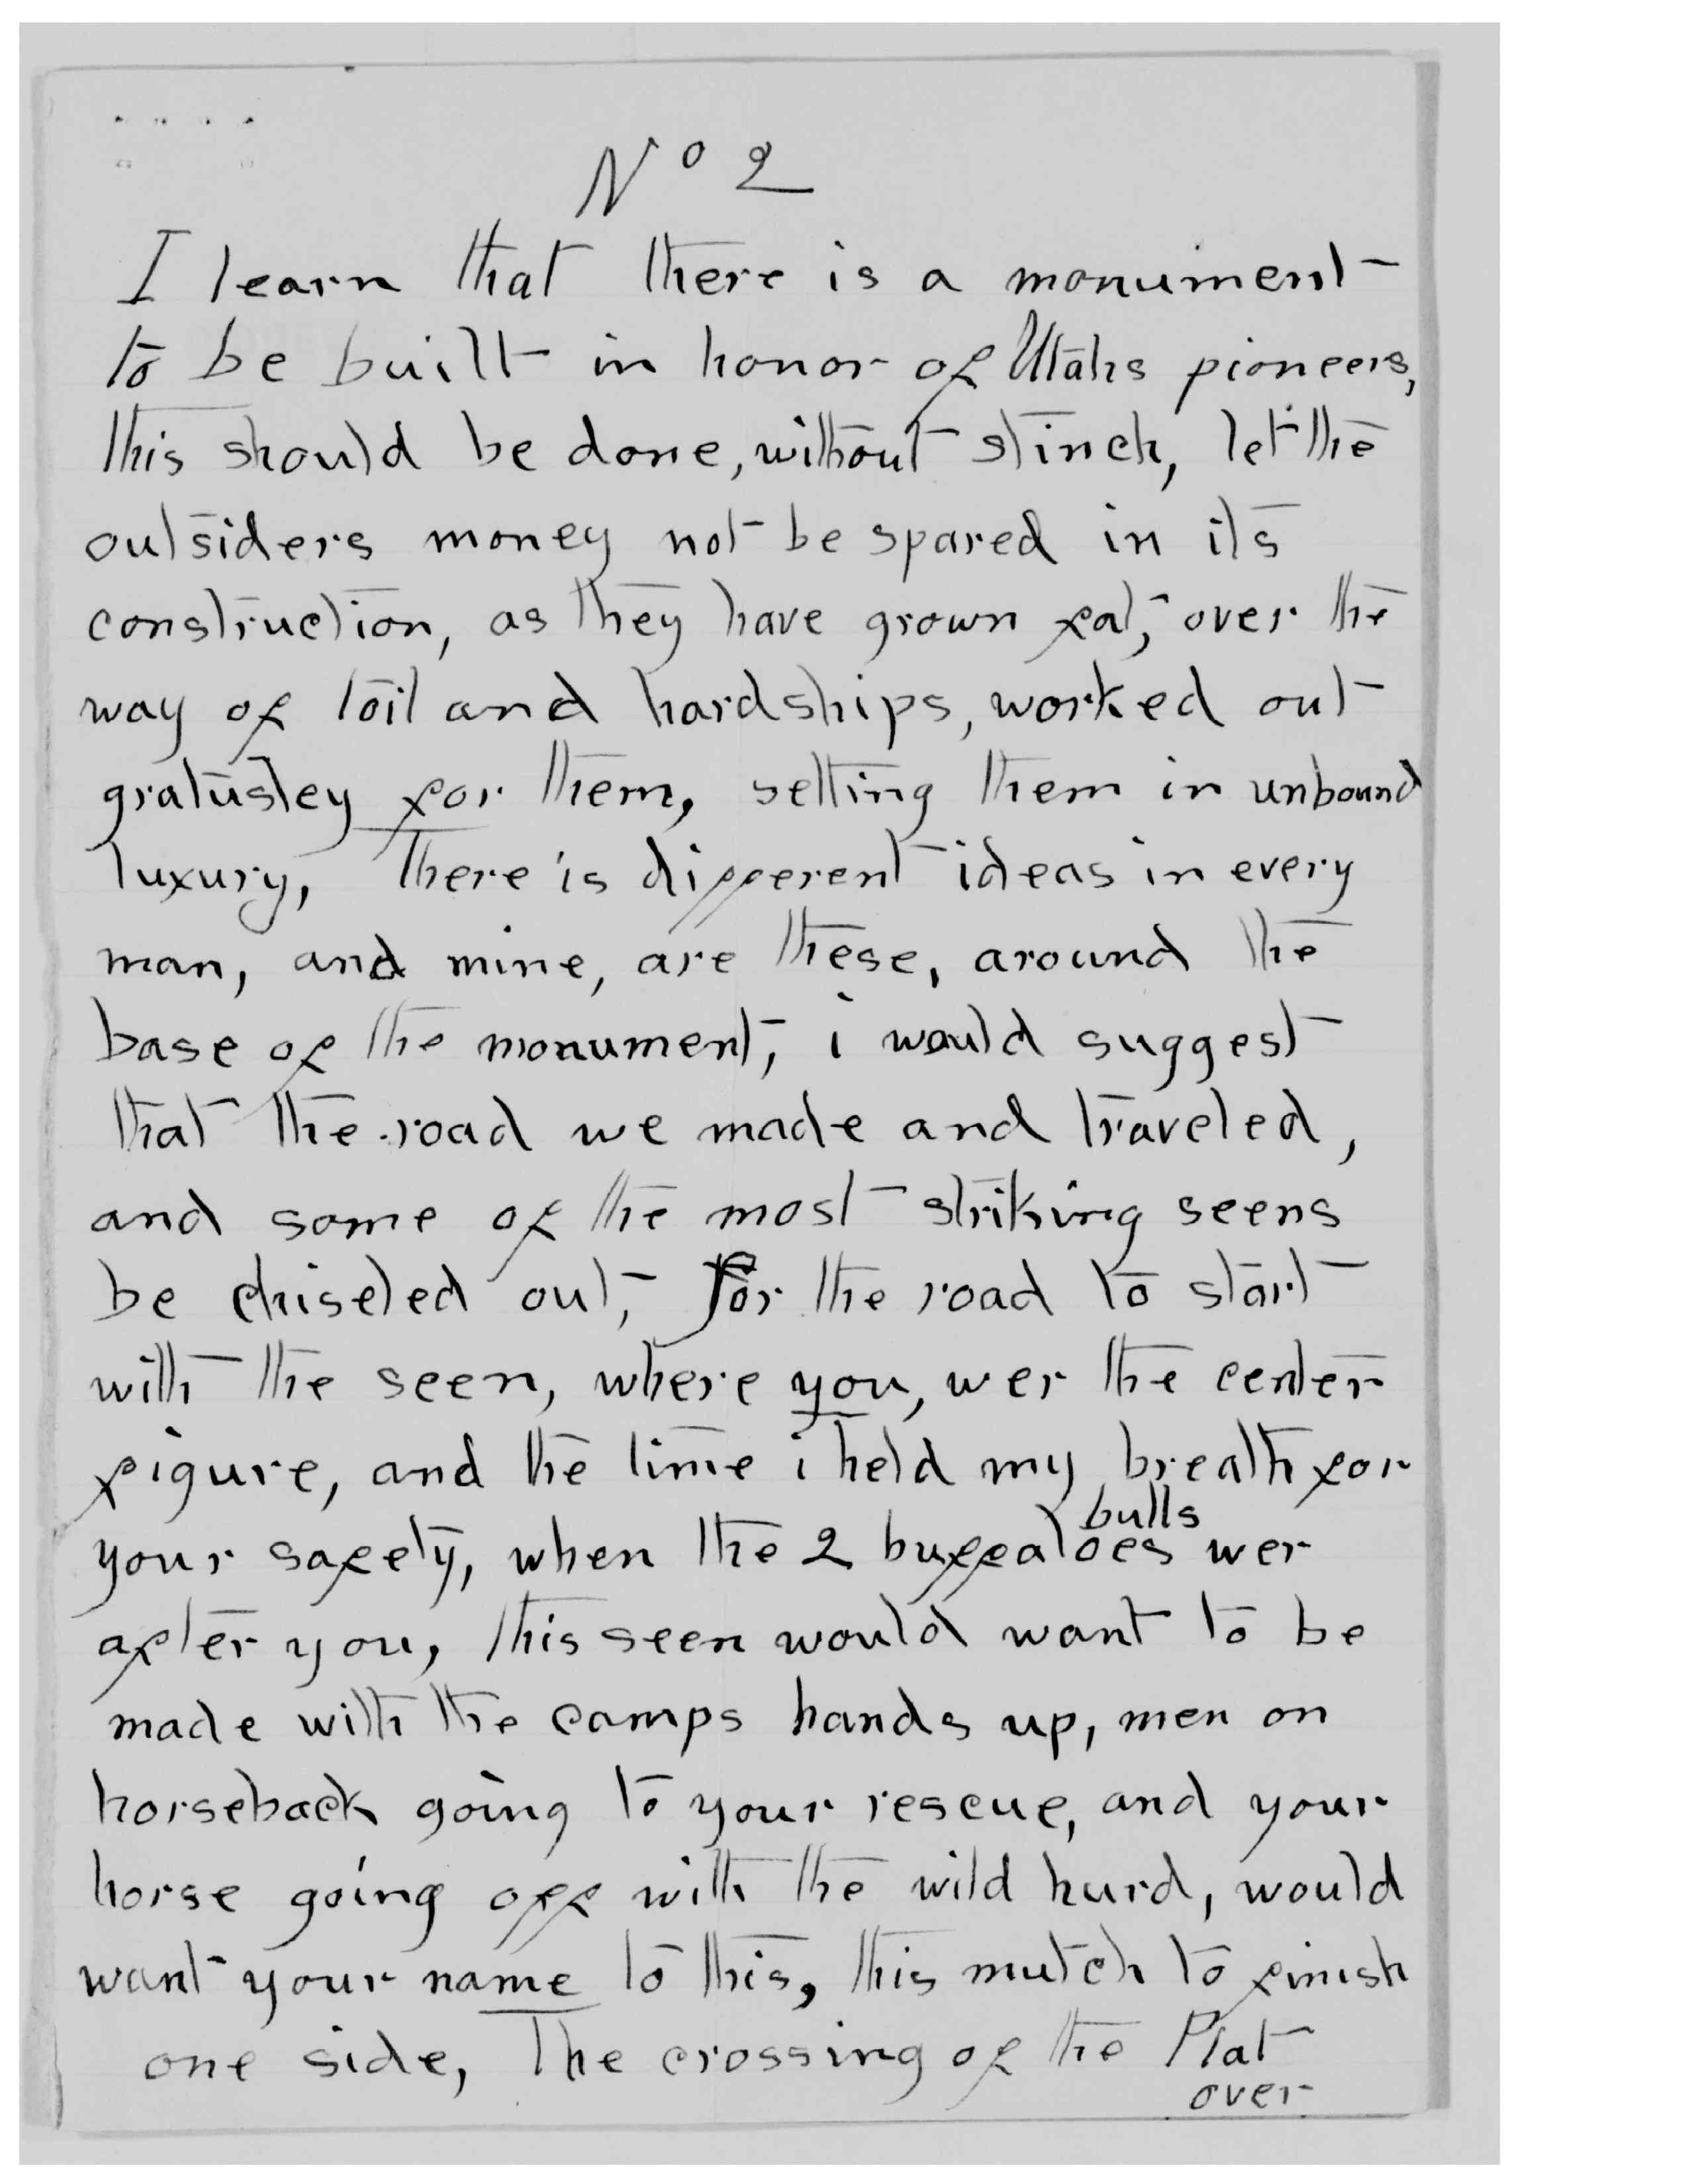 No 2
I learn that there is a monument
to be built in honor of Utahs pioneers,
this should be done, without stinch, let the
outsiders money not be spared in its
construction, as they have grown fat, over the
way of toil and hardships, worked out
gratustey for them, setting them in unbound
luxury, There is different ideas in every
man, and mine, are these, around the
base of the monument, i would suggest
that the road we made and traveled,
and some of the most striking seens
be chiseled out, for the road to start
with the seen, where you, wer the center
figure, and the time i held my breath for
bulls
your safety, when the 2 buffaloes wer
after you, this seen would want to be
made with the camps hands up, men on
horseback going to your rescue, and your
horse going off with the wild hurd, would
want your name to this, this mutch to finish
one side, The crossing of the Plat
over